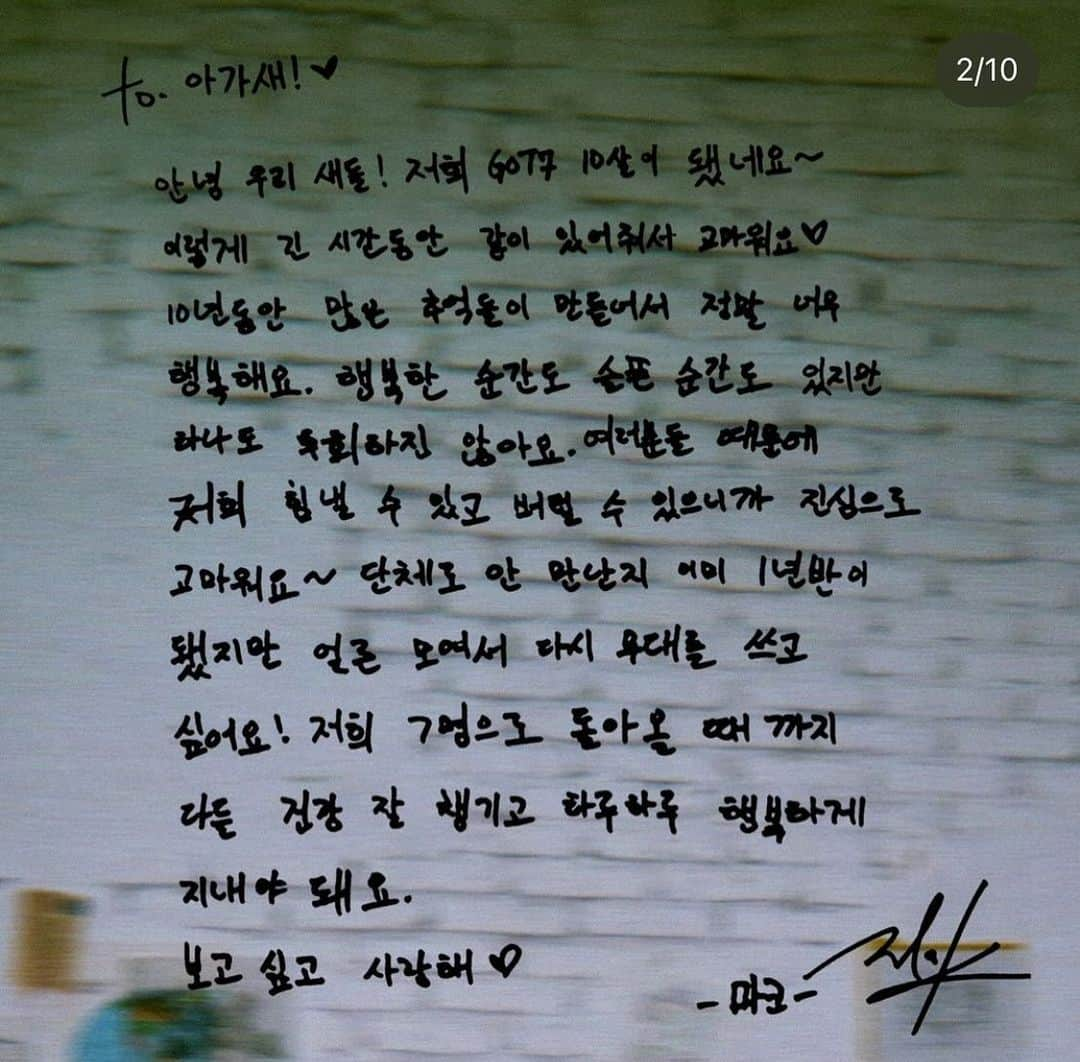 2/10
to. 아가새!♥
안녕 우리 새들! 저희 GOT7 10살이 됐네요~
이렇게 긴 시간동안 같이 있어줘서 고마워요♡
10년동안 많은 추억들이 만들어서 정말 너무
행복해요. 행복한 순간도 슬픈 순간도 있지만
하나도 후회하진 않아요. 여러분들 때문에
저희 힘낼 수 있고 버틸 수 있으니까 진심으로
고마워요~ 단체로 안 만난지 이미 1년반이
됐지만 얼른 모여서 다시 무대를 쓰고
싶어요! 저희 7명으로 돌아올 때 까지
다들 건강 잘 챙기고 하루하루 행복하게
지내야 돼요.
보고 싶고 사랑해♡
-마크-